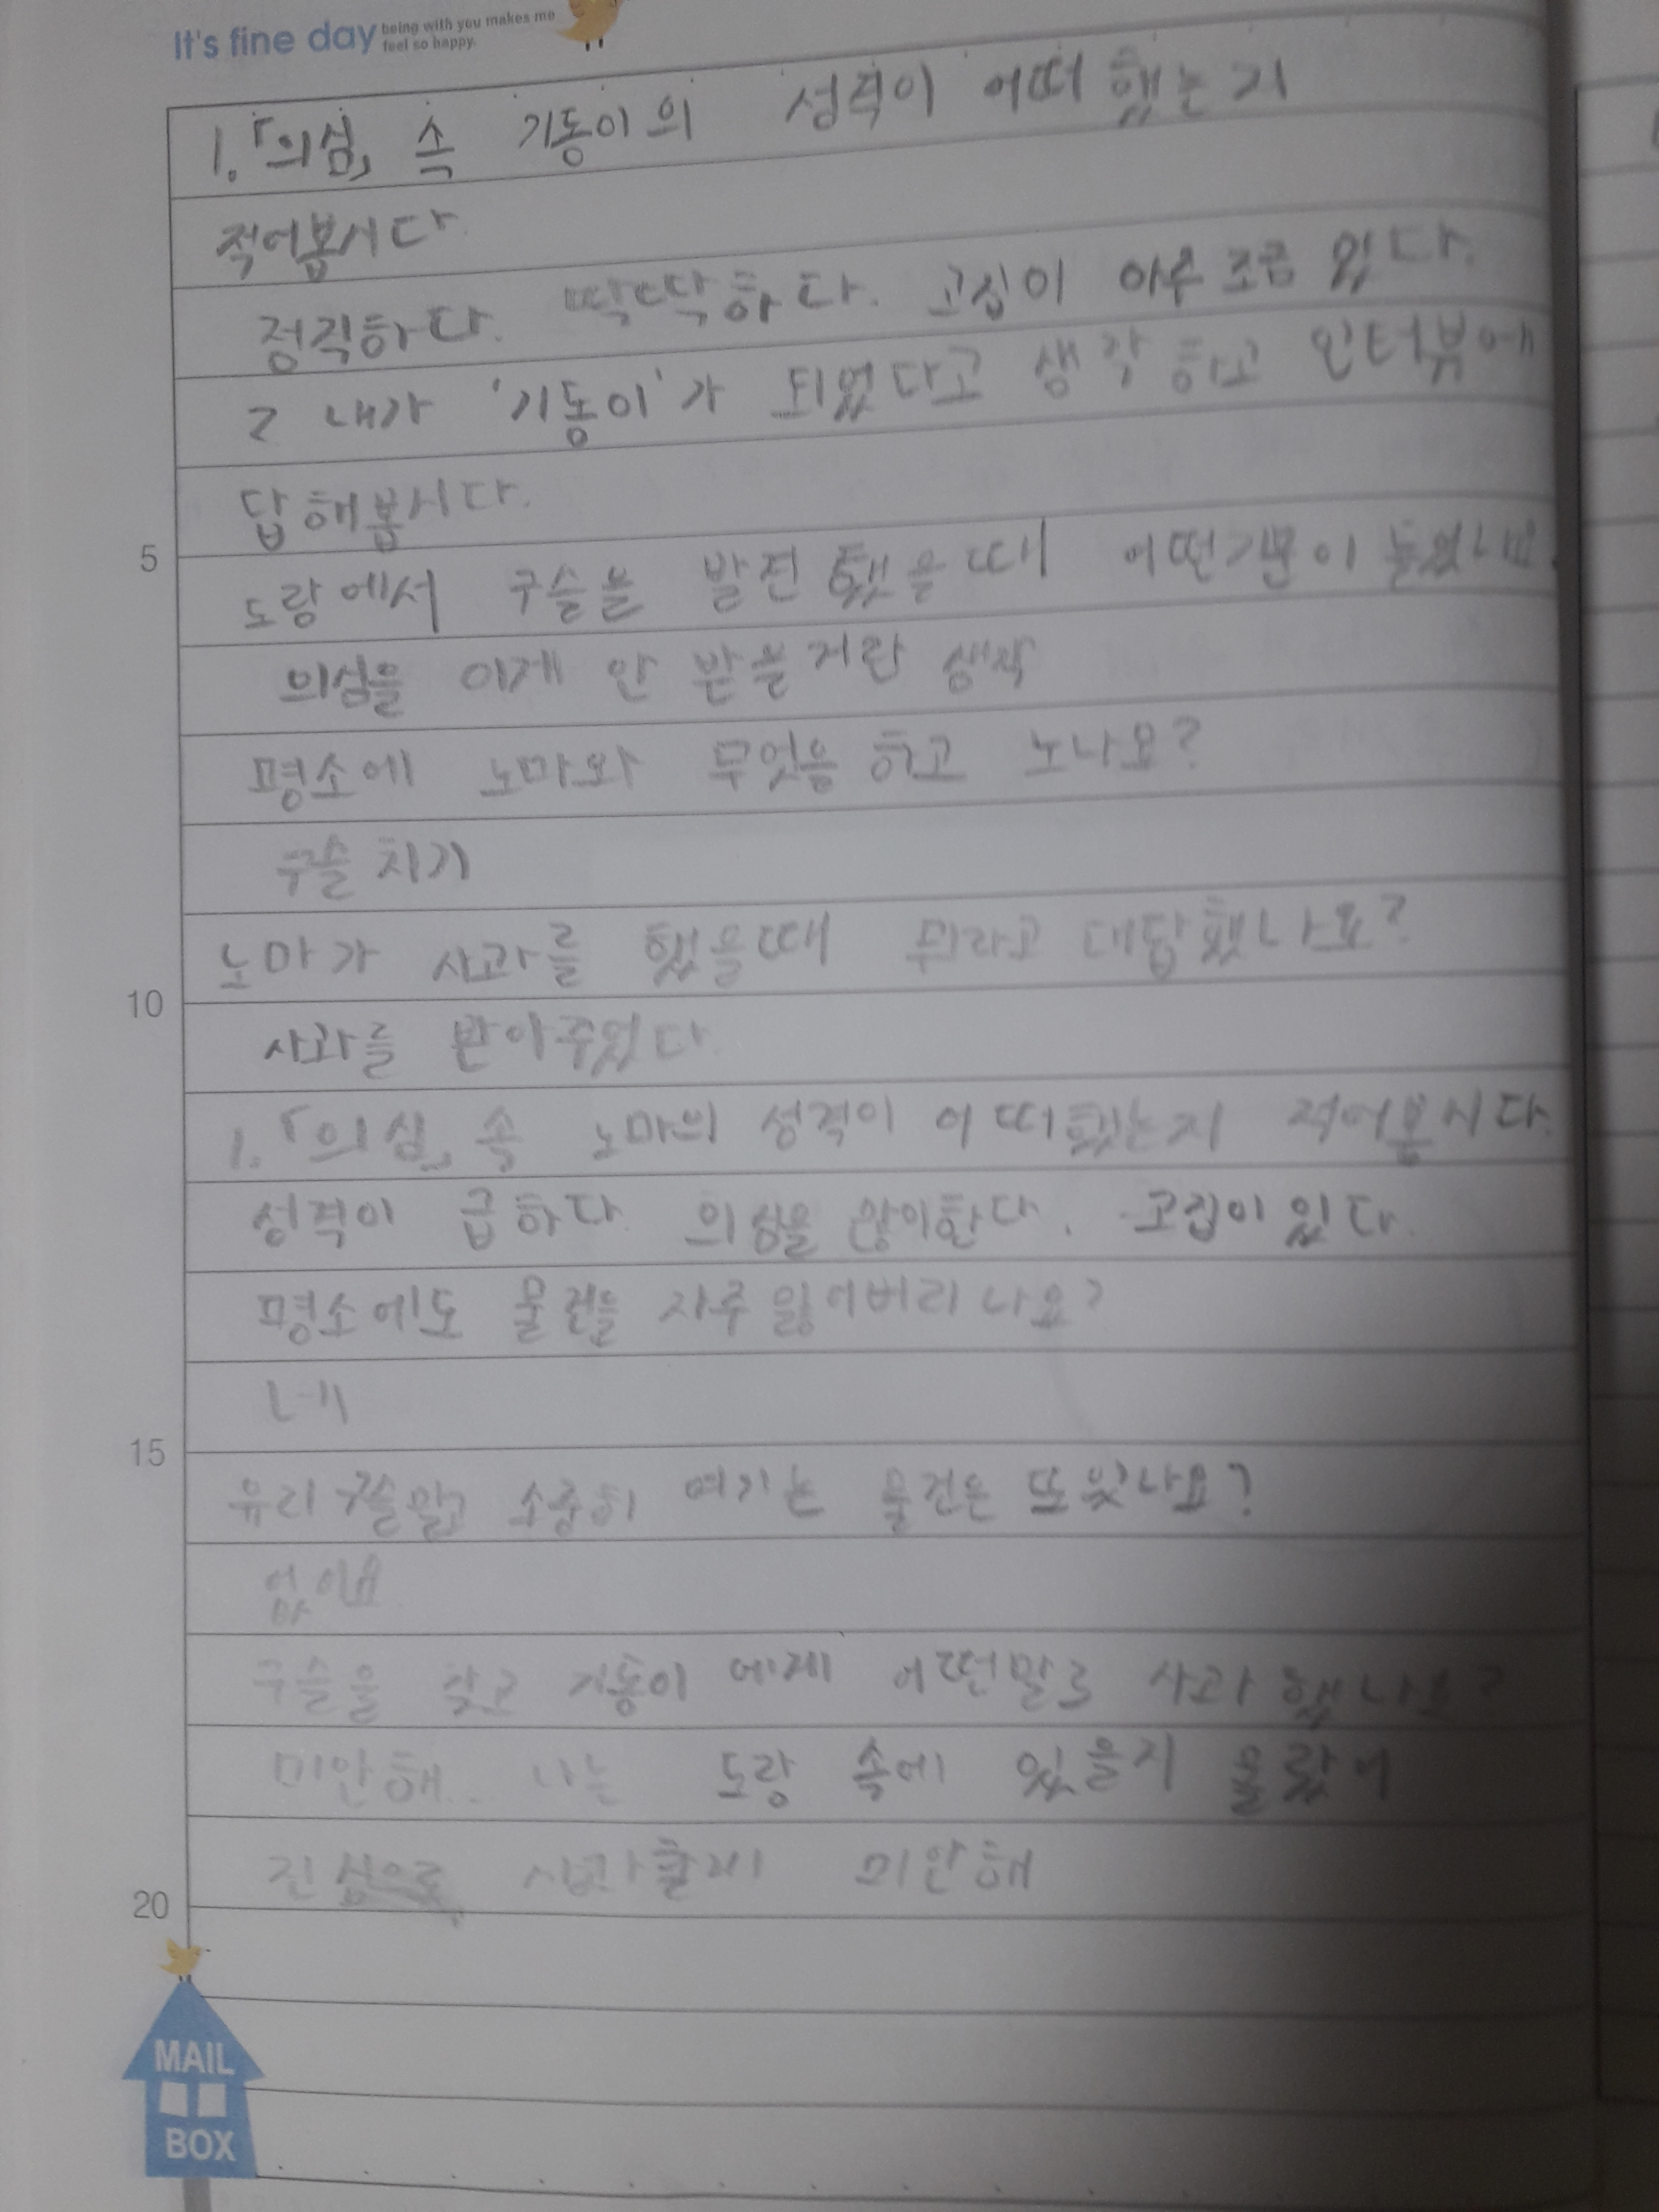 It's fine day being with you makes me
feel so happy.
1.「의심」 속 기동이의 성격이 어떠했는지
적어봅시다.
정직하다. 딱딱하다. 고집이 아주 조금 있다.
2 내가 '기동이'가 되었다고 생각하고 인터뷰에
답해봅시다.
5
도랑에서 구슬을 발견했을때 어떤기분이 들었나요.
의심을 이제 안 받을거란 생각
평소에 노마와 무엇을 하고 노나요?
구슬치기
노마가 사과를 했을때 뭐라고 대답했나요?
10
사과를 받아주었다.
1.「의심」 속 노마의 성격이 어떠했는지 적어봅시다.
성격이 급하다 의심을 많이한다. 고집이 있다.
평소에도 물건을 자주 잃어버리나요?
네
15
유리구슬말고 소중히 여기는 물건은 또있나요?
없어요.
구슬을 찾고 기동이에게 어떤말로 사과했나요?
미안해. 나는 도랑 속에 있을지 몰랐어
진심으로 사과할게 미안해
20
MAIL
BOX